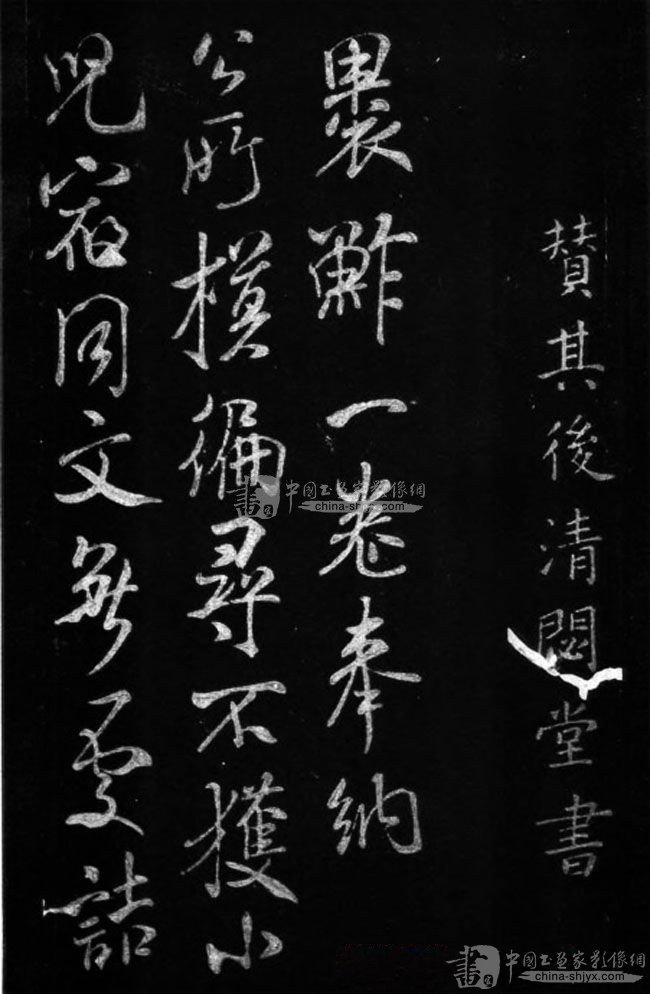 賛其後清閟堂書
裹鮓一卷奉納
公所模徧尋不獲小
兒同文無處詰
書 中國书画家影像網
china-shjyx.com
書 中國书画家影像網
china-shjyx.com